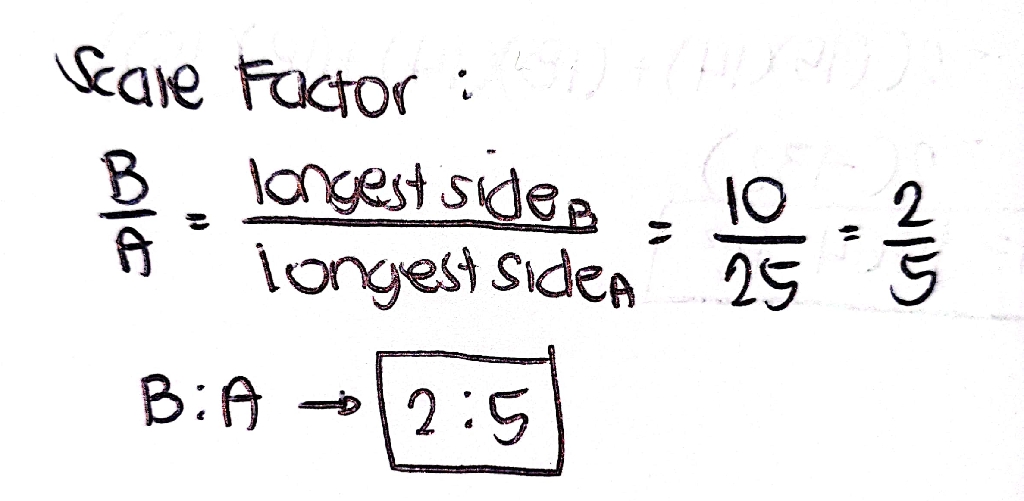 Scale Factor :
B/A = longest side B / longest side A = 10/25 = 2/5
B:A → 2:5